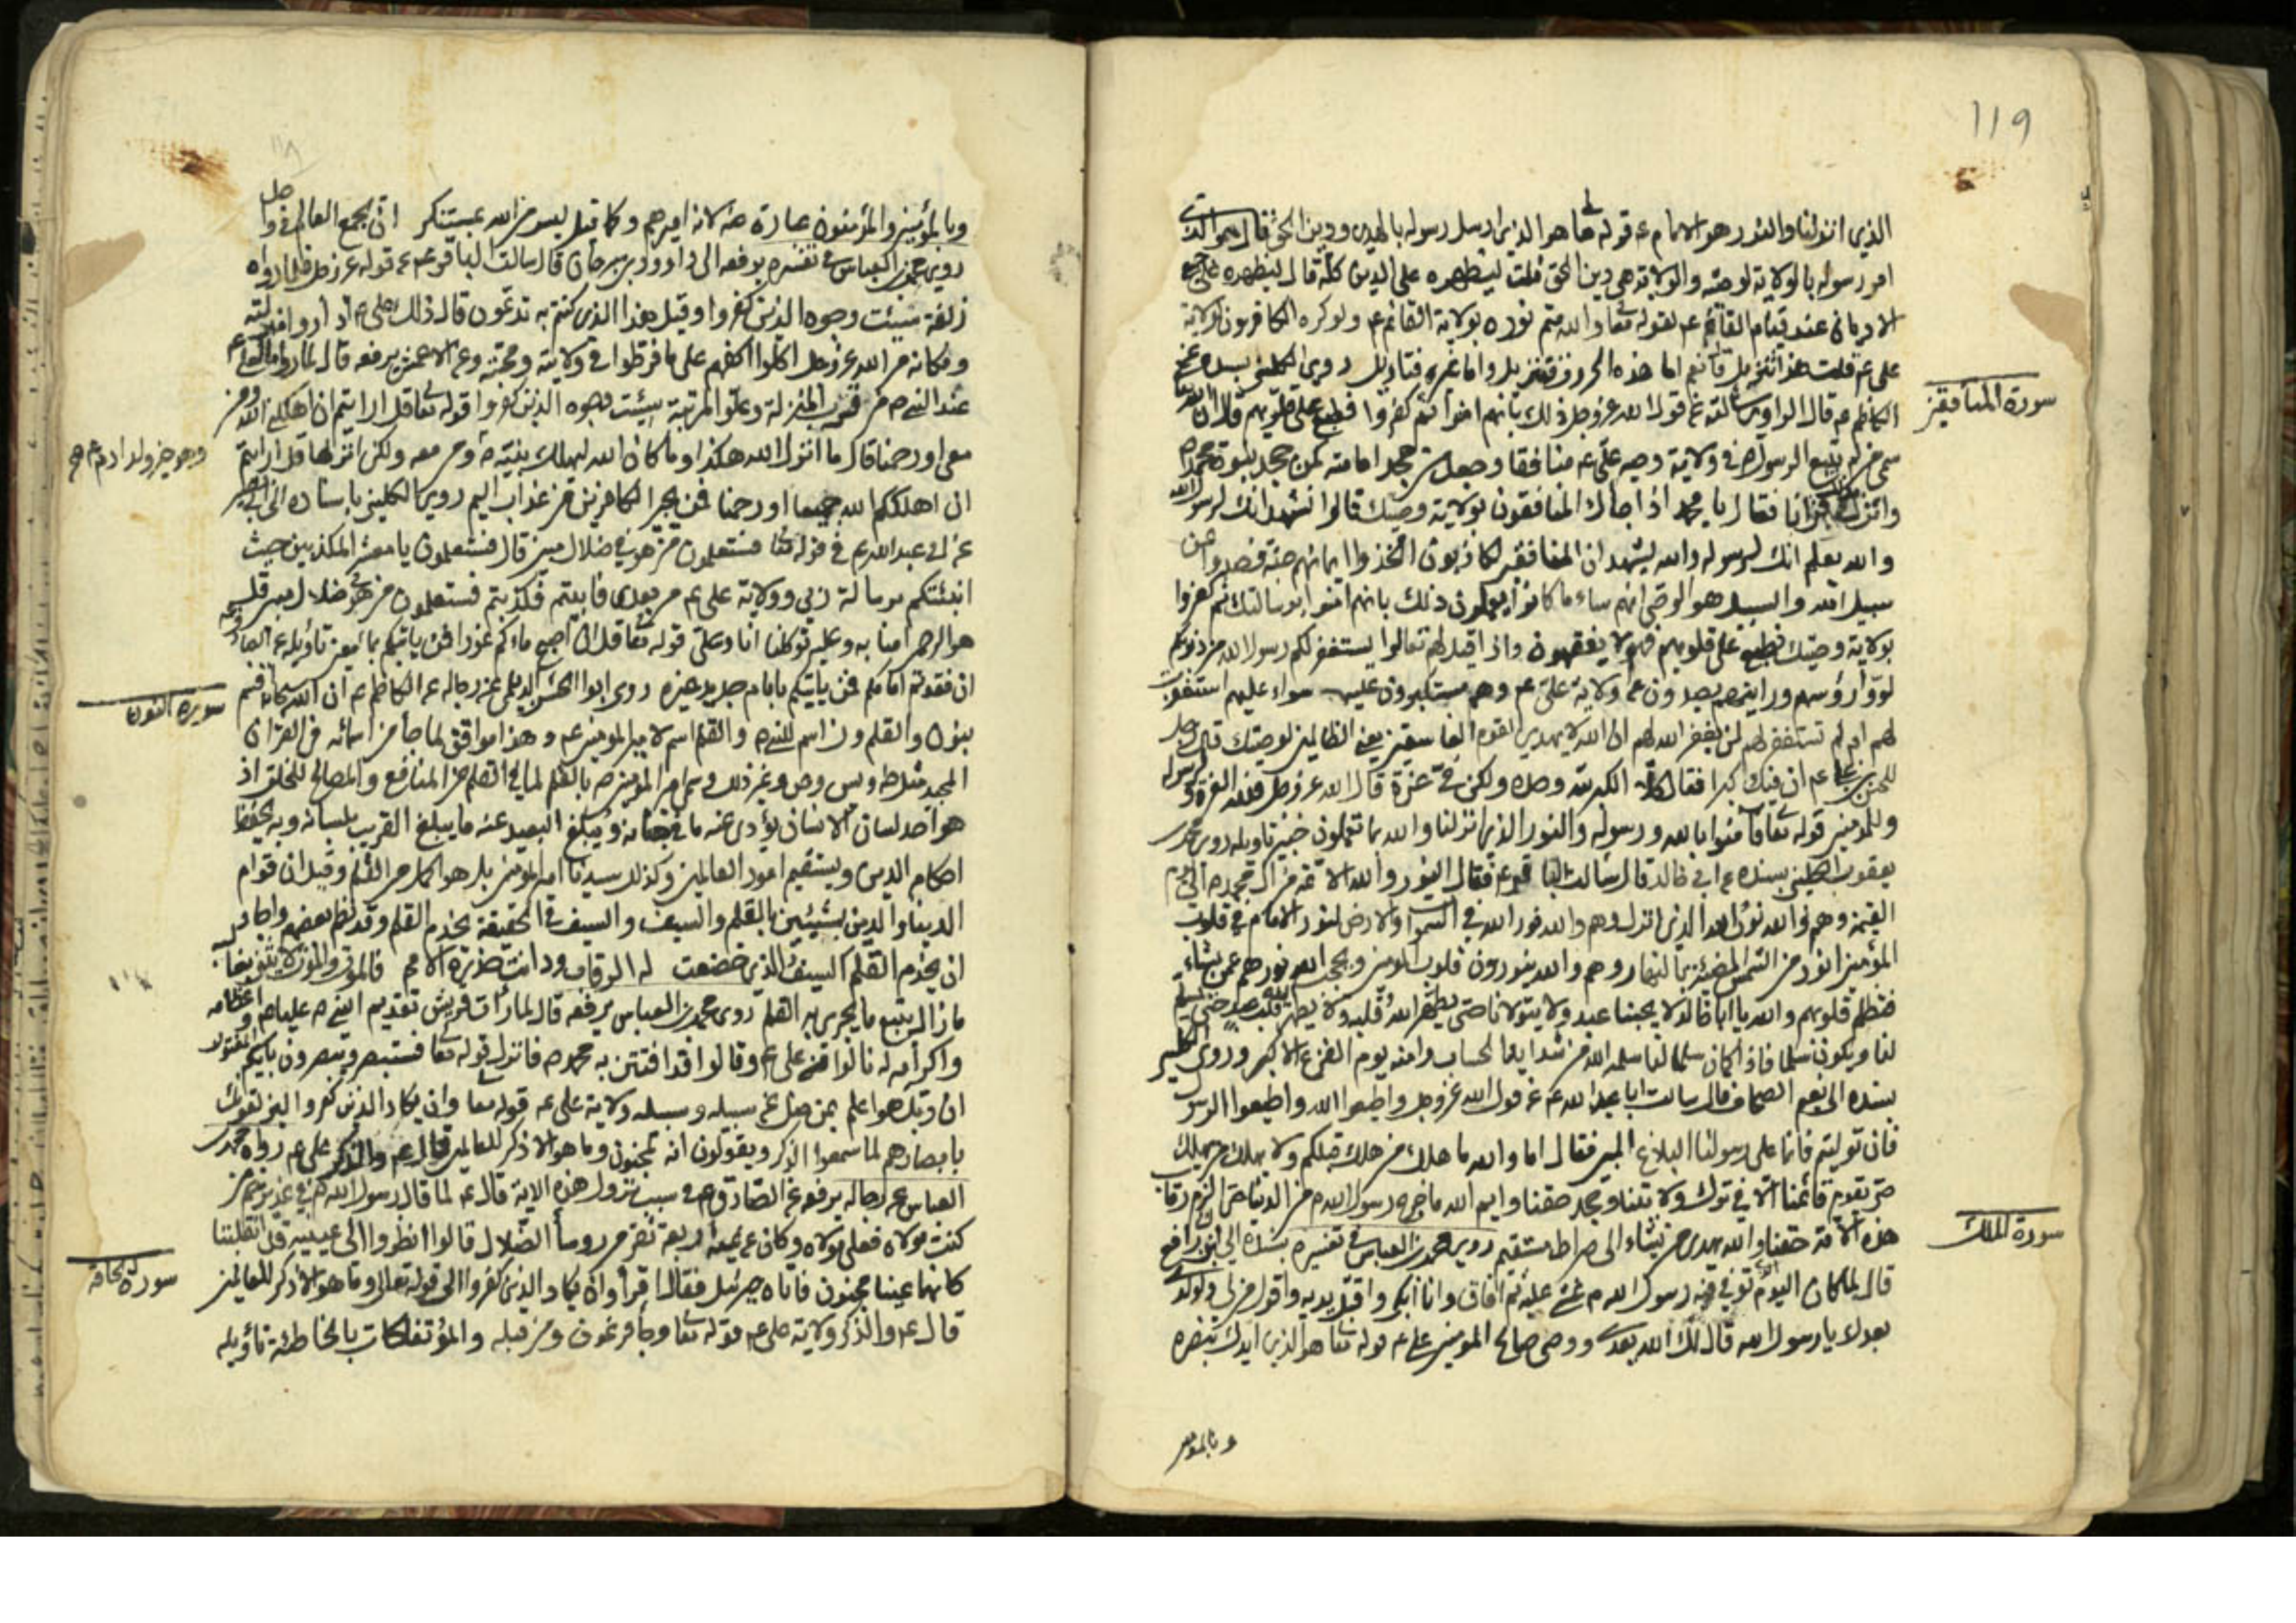 119
الذي انزلنا والنور هو الامام ع قوله تعا هو الذي ارسل رسوله بالهدى ودين الحق قال هو الذي
امر رسوله بالولاية لوصيه والولاية هي دين الحق قلت ليظهره على الدين كله قال ليظهره على جميع
الاديان عند قيام القائم ع لقوله تعا والله متم نوره بولاية القائم ع ولو كره الكافرون بولاية
على ع قلت هذا تنزيل قال نعم اما هذه الحروف فتنزيل واما غيره فتاويل روى الكليني بسنده عن
سورة المنافقين
الكاظم ع قال الراوي سالته عن قول الله عز وجل ذلك بانهم امنوا ثم كفروا فطبع على قلوبهم قال ان الله تعا
سمى من لم يتبع الرسول ص في ولاية وصيه على ع منافقا وجعل من جحد امامته كمن جحد نبوة محمد ص
وانزل بذلك قرآنا فقال يا محمد اذا جاءك المنافقون بولاية وصيك قالوا نشهد انك لرسول الله
والله يعلم انك لرسوله والله يشهد ان المنافقين لكاذبون اتخذوا ايمانهم جنة فصدوا عن
سبيل الله والسبيل هو الوصي انهم ساء ما كانوا يعملون ذلك بانهم امنوا برسالتك ثم كفروا
بولاية وصيك فطبع على قلوبهم فهم لا يفقهون واذا قيل لهم تعالوا يستغفر لكم رسول الله من ذنوبكم
لووا رؤسهم ورايتهم يصدون عن ولاية على ع وهم مستكبرون عليه سواء عليهم استغفرت
لهم ام لم تستغفر لهم لن يغفر الله لهم ان الله لا يهدي القوم الفاسقين يعنى الظالمين لوصيك قال رجل
للحسن بن على ع ان فيك كبرا فقال كلا الكبر لله وحده ولكن في عزة قال الله عز وجل فلله العزة ولرسوله
وللمؤمنين قوله تعا فآمنوا بالله ورسوله والنور الذي انزلنا والله بما تعملون خبير تاويله روى محمد بن
يعقوب الكليني بسنده ع ابي خالد قال سالت الباقر ع فقال النور والله الائمة من آل محمد ص الى يوم
القيمة وهم والله نور الله الذي انزل وهم والله نور الله في السموات والارض لنور الامام في قلوب
المؤمنين انور من الشمس المضيئة بالنهار وهم والله ينورون قلوب المؤمنين ويحجب الله نورهم عمن يشاء
فتظلم قلوبهم والله يا ابا خالد لا يحبنا عبد ولا يتولانا حتى يطهر الله قلبه ولا يطهر الله قلب عبد حتى يسلم
لنا ويكون سلما فاذا كان سلما لنا سلمه الله من شدايد الحساب وامنه يوم الفزع الاكبر وروى الكليني
بسنده الى نعيم الصحاف قال سالت ابا عبد الله ع عن قول الله عز وجل واطيعوا الله واطيعوا الرسول
فان توليتم فانما على رسولنا البلاغ المبين فقال اما والله ما هلك من هلك قبلكم ولا يهلك من يهلك
حتى يقوم قائمنا الا في ترك ولايتنا وجحد حقنا وايم الله ما خرج رسول الله ص من الدنيا حتى الزم رقاب
سورة الملك
هذه الامة حقنا والله يهدى من يشاء الى صراط مستقيم روى محمد بن العباس في تفسيره بسنده الى ابن ابي رافع
قال لما كان اليوم الذي توفي فيه رسول الله ص غشى عليه ثم افاق وانا ابكى واقبل يديه واقول من لي ولولدى
بعدك يا رسول الله قال لك الله بعدى ووصى صالح المؤمنين على ع قوله تعا هو الذي ايدك بنصره
وبالمومنين
وبالمؤمنين والمؤمنون عبارة عنه لانه اميرهم وكما قيل ليس من الله بمستنكر ان يجمع العالم في واحد
روى محمد بن العباس في تفسيره يرفعه الى داوود بن سرحان قال سالت الباقر ع ع قوله عز وجل فلما راوه
زلفة سيئت وجوه الذين كفروا وقيل هذا الذي كنتم به تدعون قال ذلك على ع اذا راوا منزلته
ومكانه من الله عز وجل اكلوا اكفهم على ما فرطوا في ولايته ومحبته وع الاعمش يرفعه قال لما راوا ما لعلى ع
عند النبي ص من قرب المنزلة وعلو المرتبة سيئت وجوه الذين كفروا قوله تعا قل ارايتم ان اهلكني الله ومن
معى او رحمنا قال ما انزل الله هكذا وما كان الله ليهلك نبيه ص ومن معه ولكن انزلها قل ارايتم
وهو خير ولد ادم ع
ان اهلككم الله جميعا او رحمنا فمن يجير الكافرين من عذاب اليم روى الكليني باسناده الى ابي بصير
عن ابي عبد الله ع في قوله تعا فستعلمون من هو في ضلال مبين قال فستعلمون يا معشر المكذبين حيث
انبئتكم برسالة ربي وولاية على ع من بعدى فابيتم فكذبتم فستعلمون من هو في ضلال مبين قل
هو الرحمن امنا به وعليه توكلنا انا وعلى قوله تعا قل ان اصبح ماءكم غورا فمن ياتيكم بماء معين تاويله
ان فقدتم امامكم فمن ياتيكم بامام جديد غيره روى ابو الحسن الديلمى عن رجاله ع الكاظم ع ان الله سبحانه اقسم
سورة النون
بنون والقلم ون اسم للنبي ص والقلم اسم لامير المؤمنين ع وهذا موافق لما جاء من اسمائه في القران
المجيد مثل طه ويس وص وغير ذلك وسمى امير المؤمنين ص بالقلم لما في القلم من المنافع والمصالح للخلق اذ
هو احد لسان الانسان يؤدى عنه ما في جنانه ويبلغ البعيد عنه ما يبلغ القريب بلسانه وبه يحفظ
احكام الدين ويستقيم امور العالمين وكذلك سيدنا امير المؤمنين بل هو اكمل من القلم وقيل ان قوام
الدنيا والدين بشيئين بالقلم والسيف والسيف في الحقيقة يخدم القلم وقد نظم بعضهم واجاد
ان يخدم القلم السيف الذي خضعت له الرقاب ودانت حذره الامم فالموت والموت لا شيء يغالبه
ما زال يتبع ما يجرى به القلم روى محمد بن العباس يرفعه قال لما رات قريش تقديم النبي ص عليا ع واعظامه
واكرامه له نالوا من على ع وقالوا قد افتتن به محمد ص فانزل قوله تعا فستبصر ويبصرون بايكم المفتون
ان ربك هو اعلم بمن ضل عن سبيله وسبيله ولاية على ع قوله تعا وان يكاد الذين كفروا ليزلقونك
بابصارهم لما سمعوا الذكر ويقولون انه لمجنون وما هو الا ذكر للعالمين قال ع والذكر على ع رواه محمد بن
العباس ع رجاله يرفعه ع الصادق ع في سبب نزول هذه الاية قال ع لما قال رسول الله ص في غدير خم من
كنت مولاه فعلى مولاه وكان ع يمينه اربعة نفر من روسا الضلال قالوا انظروا الى عينيه قد انقلبتا
كانهما عينا مجنون فاتاه جبرئيل فقال اقرأ وان يكاد الذين كفروا الى قوله تعالى وما هو الا ذكر للعالمين
سورة الحاقة
قال ع والذكر ولاية على ع قوله تعا وجاء فرعون ومن قبله والمؤتفكات بالخاطئة تأويله